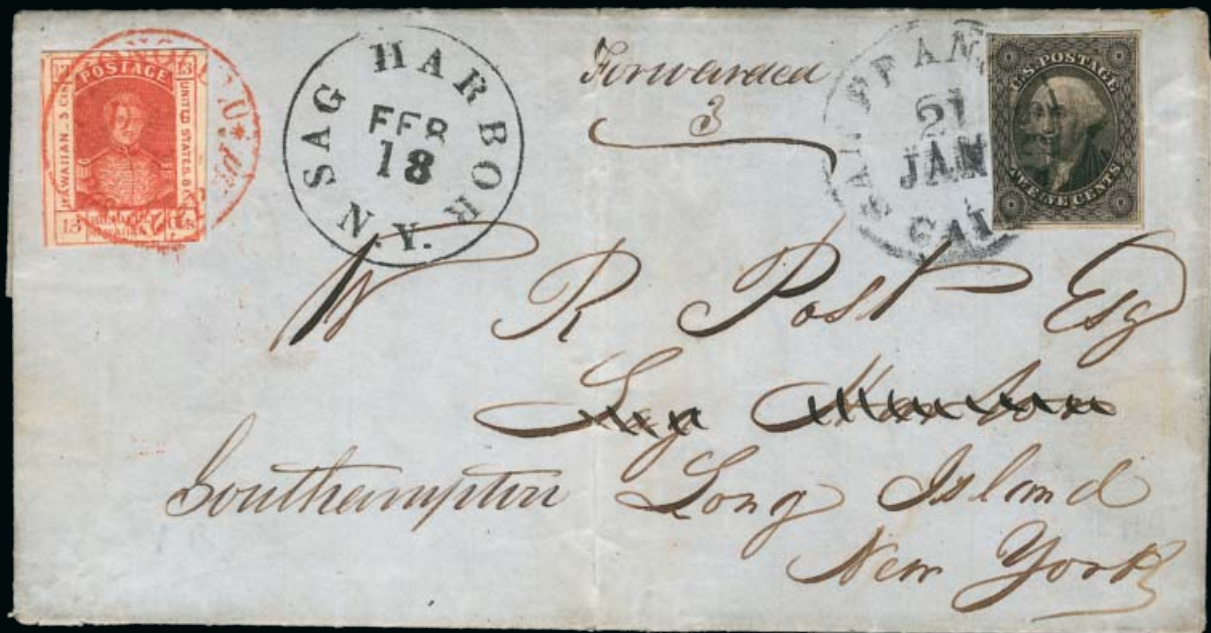 13 POSTAGE 13
HAWAIIAN . 5 Cts.
UNITED STATES. 8
13 Cts
HONOLULU * U.S.
SAG HARBOR N.Y.
FEB
18
Forwarded
3
SAN FRAN
21
JAN
CAL
U.S. POSTAGE
TWELVE CENTS
W R Post Esq
Sag Harbor
Southampton Long Island
New York